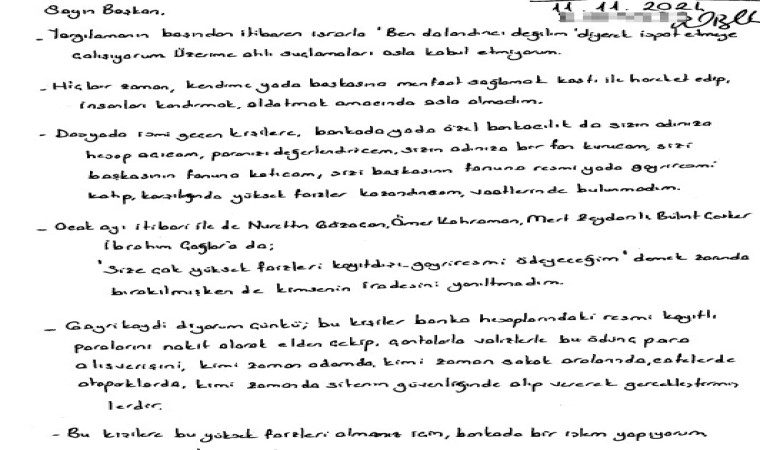 Sayın Başkan, 11.11.2024
- Yargılamanın başından itibaren ısrarla "Ben dolandırıcı değilim" diyerek ispat etmeye
çalışıyorum Üzerime atılı suçlamaları asla kabul etmiyorum.
- Hiçbir zaman, kendime yada başkasına menfaat sağlamak kastı ile hareket edip,
insanları kandırmak, aldatmak amacında asla olmadım.
- Dosyada ismi geçen kişilere, bankada yada özel bankacılık da sizin adınıza
hesap açıcam, paranızı değerlendiricem, sizin adınıza bir fon kurucam, sizi
başkasının fonuna katıcam, sizi başkasının fonuna resmi yada gayriresmi
katıp, karşılığında yüksek faizler kazandırıcam, vaatlerinde bulunmadım.
- Ocak ayı itibari ile de Nurettin Bozacan, Ömer Kahraman, Mert Zeydanlı, Bülent
İbrahim Çağlar'a da;
"Size çok yüksek faizleri kayıtdışı-gayriresmi ödeyeceğim" demek zorunda
bırakılmışken de kimsenin iradesini yanıltmadım.
- Gayrikaydi diyorum Çünkü; bu kişiler banka hesaplarındaki resmi kayıtlı
paralarını nakit olarak elden çekip, çantalarla valizlerle bu ödünç para
alışverişini, kimi zaman odamda, kimi zaman sokak aralarında, cafelerde
otoparklarda, kimi zamanda sitenin güvenliğinde alıp vererek gerçekleştirmiş
lerdir.
- Bu kişilere bu yüksek faizleri almanız için, bankada bir işlem yapıyorum